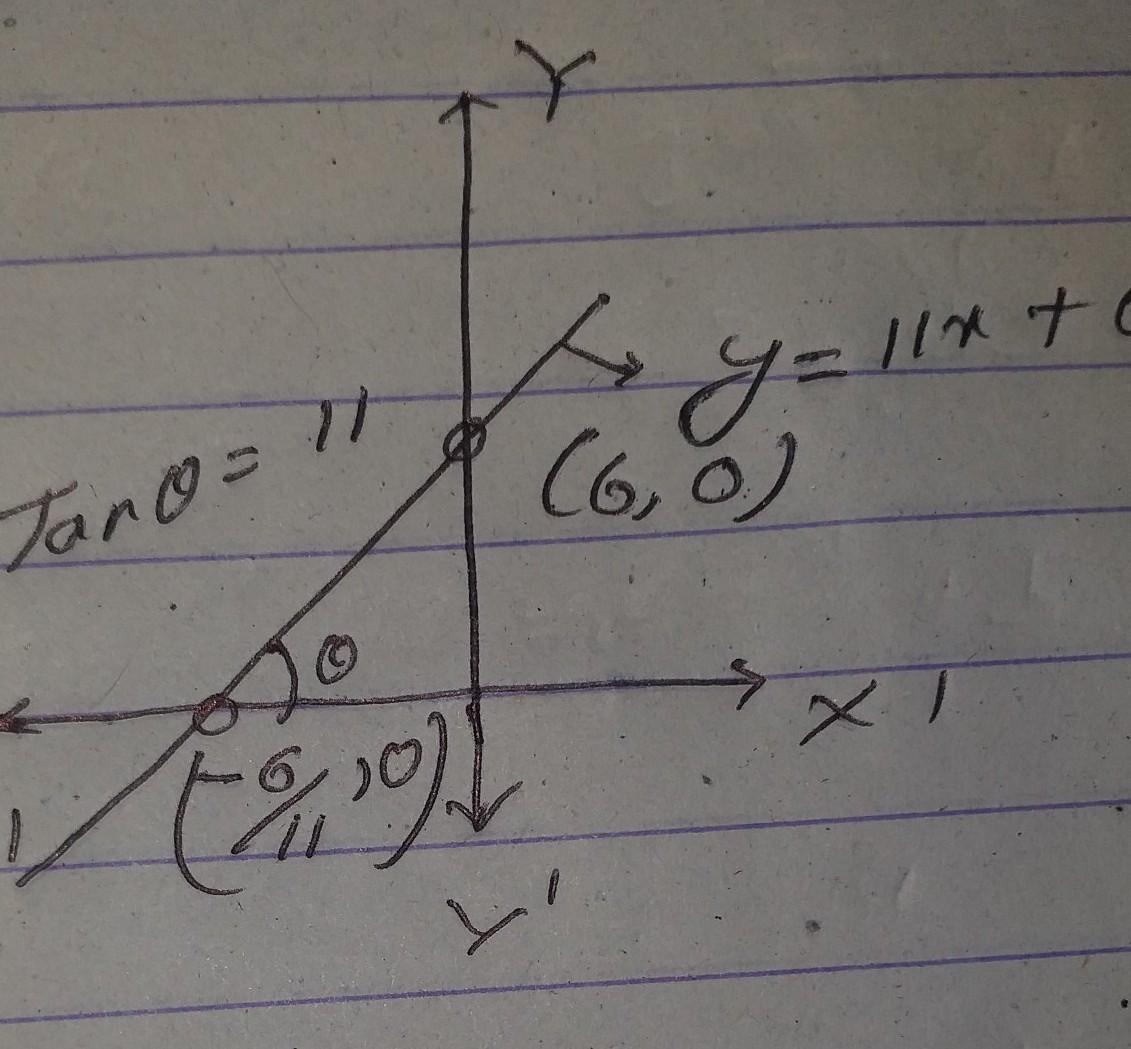 Y
y = 11x +
Tanθ = 11
(6, 0)
θ
X'
(-6/11, 0)
Y'